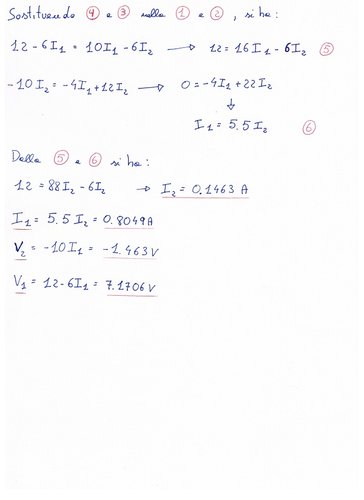 Sostituendo ④ e ③ nella ① e ②, si ha:
12 - 6I₁ = 10I₁ - 6I₂ → 12 = 16I₁ - 6I₂ ⑤
-10I₂ = -4I₁ + 12I₂ → 0 = -4I₁ + 22I₂
↓
I₁ = 5.5I₂ ⑥
Dalla ⑤ e ⑥ si ha:
12 = 88I₂ - 6I₂ → I₂ = 0.1463 A
I₁ = 5.5I₂ = 0.8049A
V₂ = -10I₁ = -1.463V
V₁ = 12-6I₁ = 7.1706V